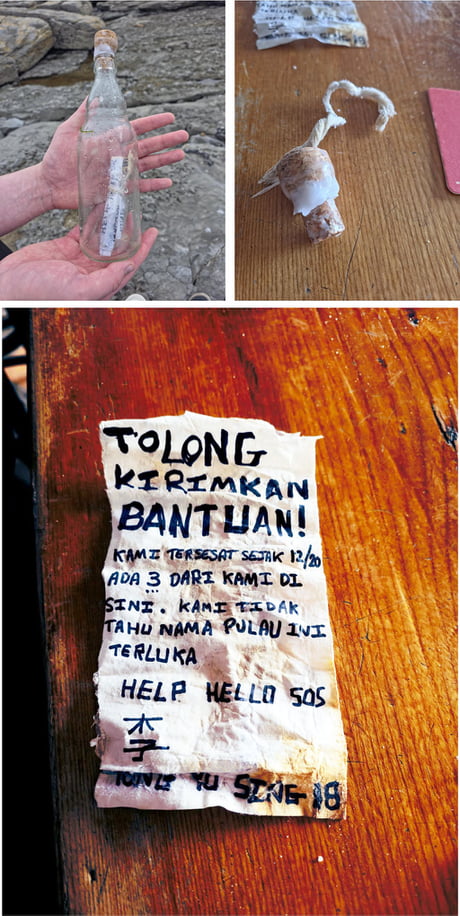 TOLONG
KIRIMKAN
BANTUAN!
KAMI TERSESAT SEJAK 12/20
ADA 3 DARI KAMI DI
SINI. KAMI TIDAK
TAHU NAMA PULAU INI
TERLUKA
HELP HELLO SOS
YU SING 18